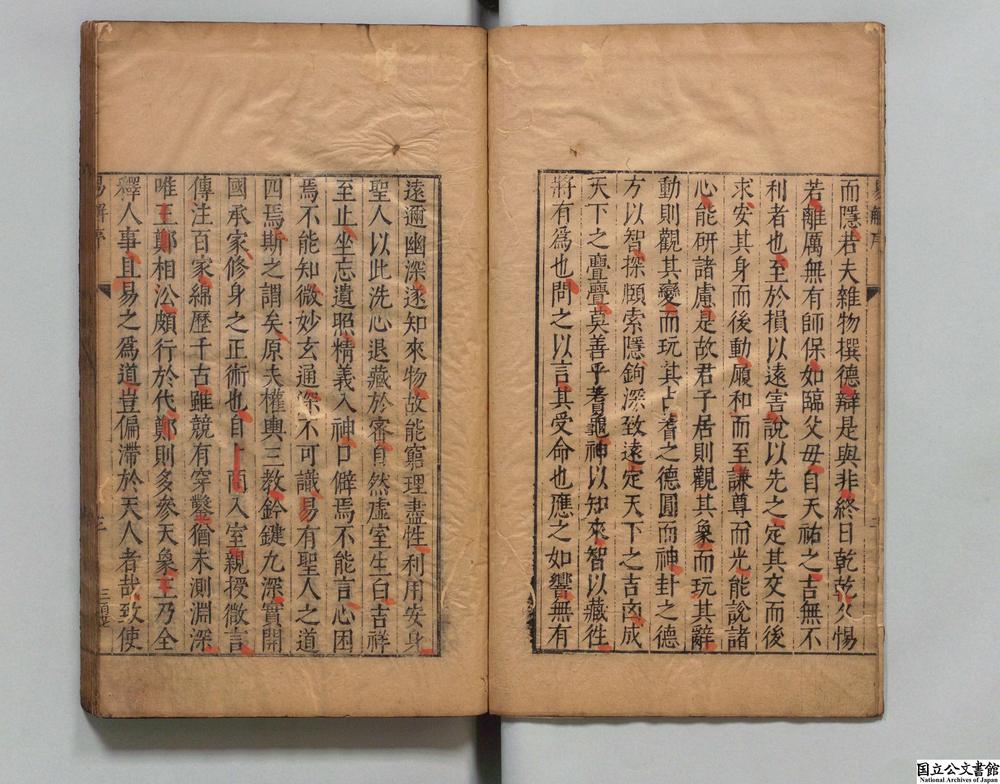 而隱若夫雜物撰德辯是與非終日乾乾夕惕
若離厲無有師保如臨父母自天祐之吉無不
利者也至於損以遠害說以先之定其交而後
求安其身而後動履和而至謙尊而光能說諸
心能研諸慮是故君子居則觀其象而玩其辭
動則觀其變而玩其占蓍之德圓而神卦之德
方以智探賾索隱鉤深致遠定天下之吉凶成
天下之亹亹莫善乎蓍龜神以知來智以藏徃
將有爲也問之以言其受命也應之如響無有
易解序
遠邇幽深遂知來物故能窮理盡性利用安身
聖人以此洗心退藏於密自然虛室生白吉祥
至止坐忘遺照精義入神口僻焉不能言心困
焉不能知微妙玄通深不可識易有聖人之道
四焉斯之謂矣原夫權輿三教鈐鍵九深實開
國承家修身之正術也自卜商入室親授微言
傳注百家綿歷千古雖競有穿鑿猶未測淵深
唯王鄭相沿頗行於代鄭則多參天象王乃全
釋人事且易之爲道豈偏滯於天人者哉致使
易解序
三
国立公文書館
National Archives of Japan